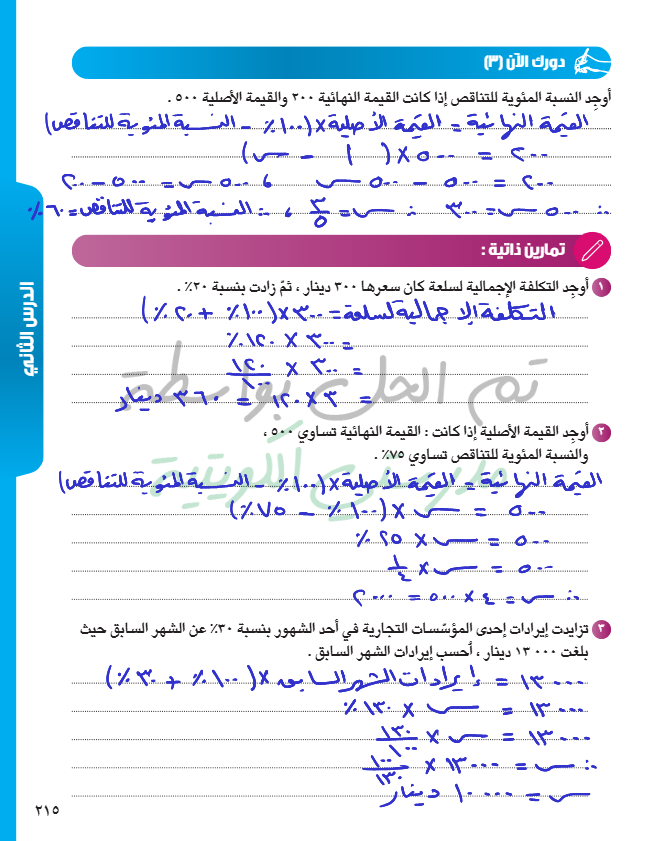 دورك الآن (٣)
أوجِد النسبة المئوية للتناقص إذا كانت القيمة النهائية ٢٠٠ والقيمة الأصلية ٥٠٠ .
القيمة النهائية = القيمة الأصلية × (١٠٠٪ − النسبة المئوية للتناقص)
٢٠٠ = ٥٠٠ × (١ − س)
٢٠٠ = ٥٠٠ − ٥٠٠ س ، ٥٠٠ س = ٥٠٠ − ٢٠٠
∴ ٥٠٠ س = ٣٠٠ ∴ س = ٣/٥ ، ∴ النسبة المئوية للتناقص = ٦٠٪
تمارين ذاتية :
١ أوجِد التكلفة الإجمالية لسلعة كان سعرها ٣٠٠ دينار ، ثمّ زادت بنسبة ٢٠٪ .
التكلفة الإجمالية لسلعة = ٣٠٠ × (١٠٠٪ + ٢٠٪)
= ٣٠٠ × ١٢٠٪
= ٣٠٠ × ١٢٠/١٠٠
= ٣ × ١٢٠ = ٣٦٠ دينار
تم الحل بواسطة
٢ أوجِد القيمة الأصلية إذا كانت : القيمة النهائية تساوي ٥٠٠ ،
والنسبة المئوية للتناقص تساوي ٧٥٪ .
مدرستي الكويتية
القيمة النهائية = القيمة الأصلية × (١٠٠٪ − النسبة المئوية للتناقص)
٥٠٠ = س × (١٠٠٪ − ٧٥٪)
٥٠٠ = س × ٢٥٪
٥٠٠ = س × ١/٤
∴ س = ٤ × ٥٠٠ = ٢٠٠٠
٣ تزايدت إيرادات إحدى المؤسّسات التجارية في أحد الشهور بنسبة ٣٠٪ عن الشهر السابق حيث
بلغت ١٣٠٠٠ دينار ، أحسب إيرادات الشهر السابق .
١٣٠٠٠ = إيرادات الشهر السابق × (١٠٠٪ + ٣٠٪)
١٣٠٠٠ = س × ١٣٠٪
١٣٠٠٠ = س × ١٣٠/١٠٠
∴ س = ١٣٠٠٠ × ١٠٠/١٣٠
س = ١٠٠٠٠ دينار
الدرس الثاني
٢١٥